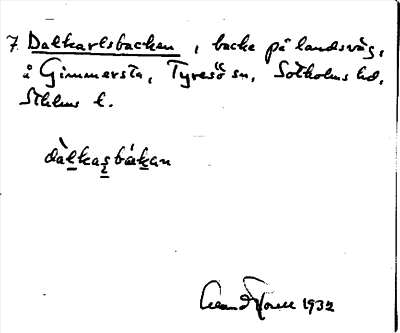 7 Dalkarlsbacken, backe på landsväg,
å Gimmersta, Tyresö sn, Sotholms hd,
Sthlms l.
dàlkasbákan
1932